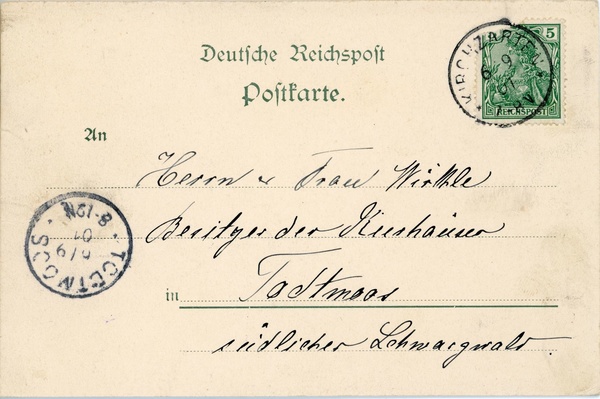 Deutsche Reichspost
Postkarte.
5
REICHSPOST
KIRCHZARTEN
6 9
01
An
Herrn & Frau Wirthle
Besitzer der Kurhäuser
in Todtmoos
südlicher Schwarzwald.
TODTMOOS
6/9
01
8-12N